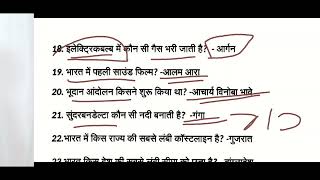 18. इलेक्ट्रिकबल्ब में कौन सी गैस भरी जाती है? - आर्गन
19. भारत में पहली साउंड फिल्म? -आलम आरा
20. भूदान आंदोलन किसने शुरू किया था? -आचार्य विनोबा भावे
21. सुंदरबनडेल्टा कौन सी नदी बनाती है? -गंगा
22.भारत में किस राज्य की सबसे लंबी कॉस्टलाइन है? -गुजरात